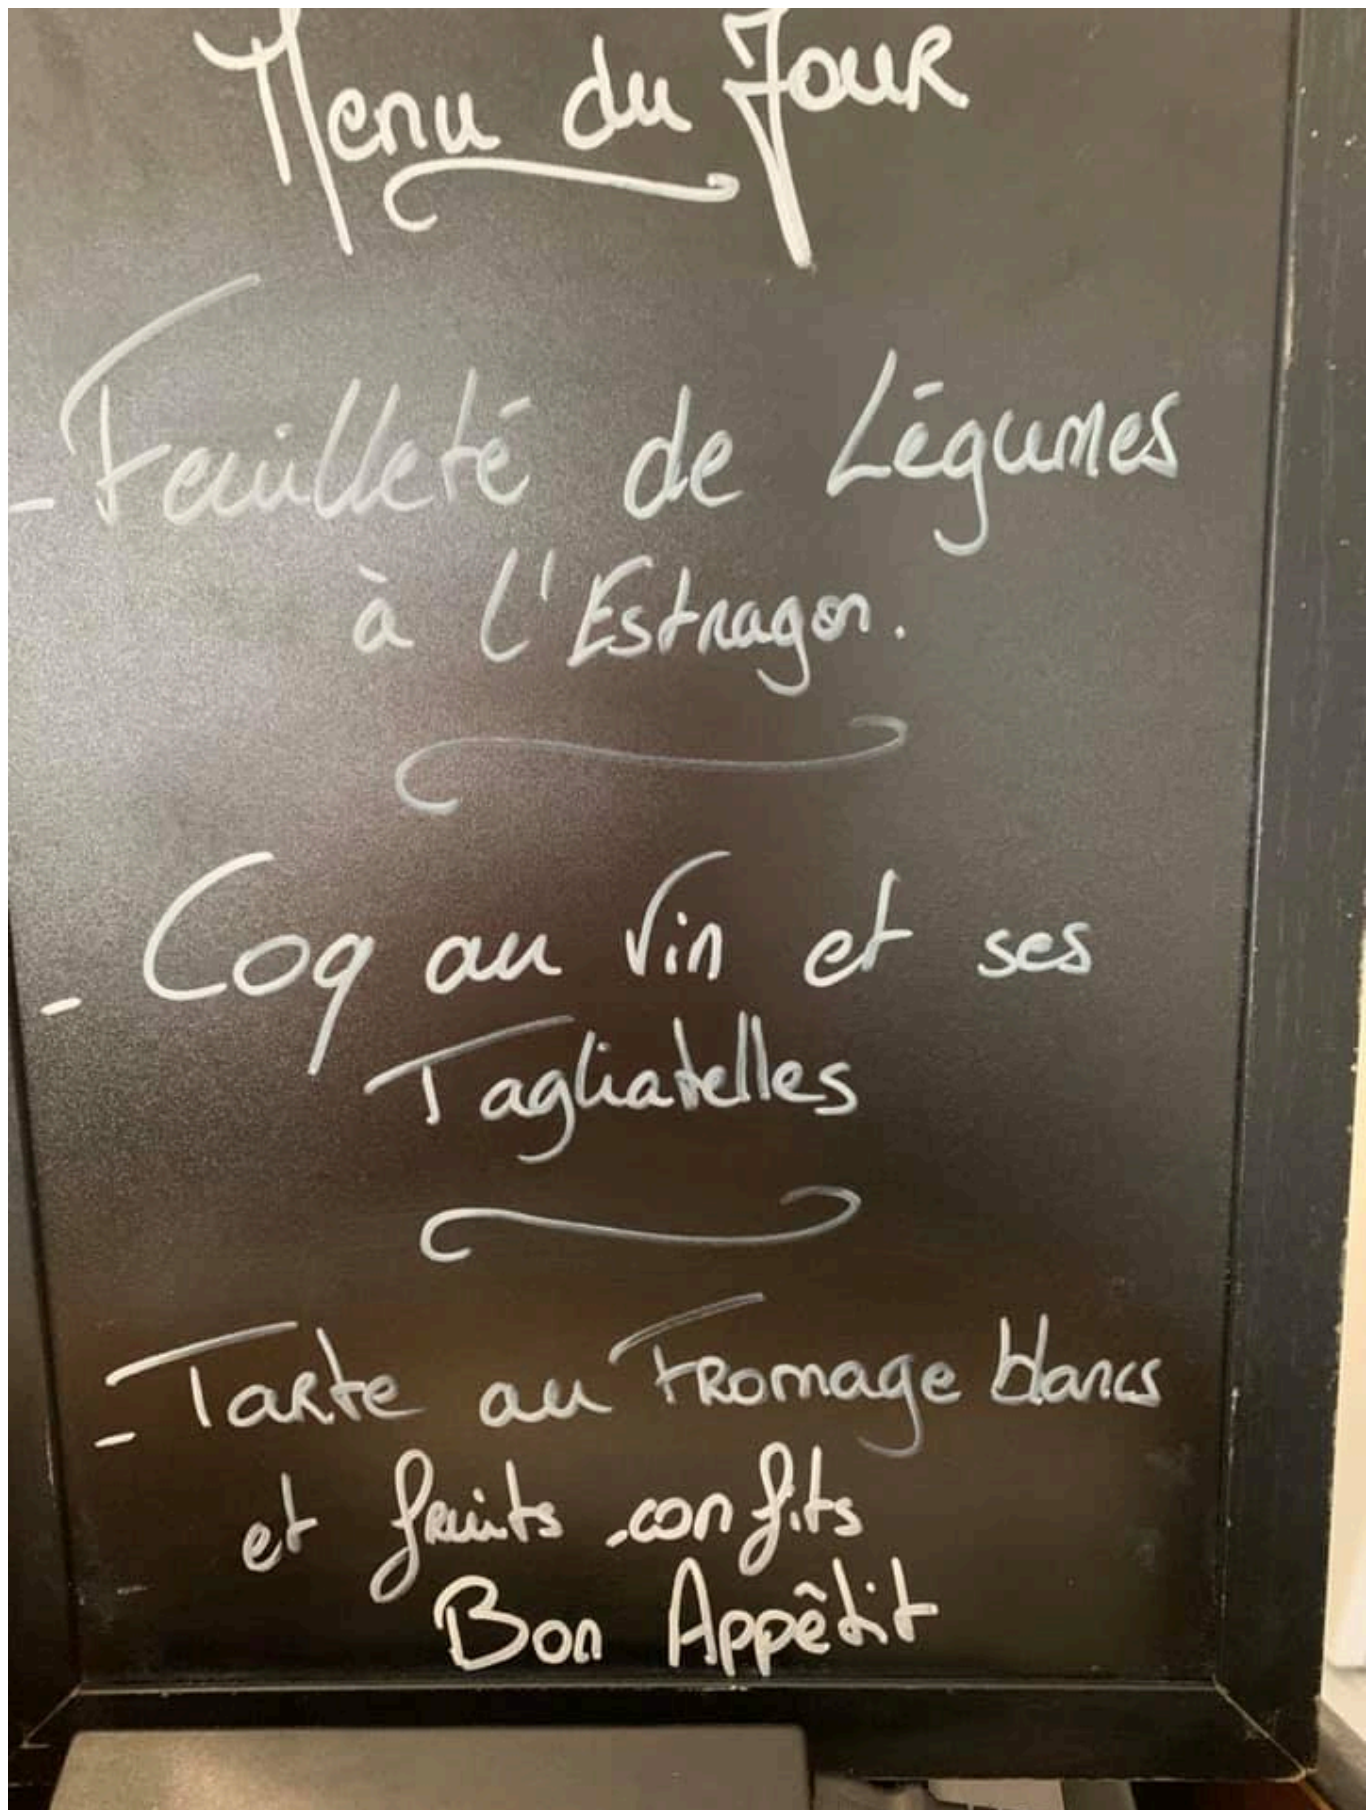 Menu du Jour
- Feuilleté de Légumes
à l'Estragon.
- Coq au Vin et ses
Tagliatelles
- Tarte au Fromage blancs
et fruits confits
Bon Appêtit